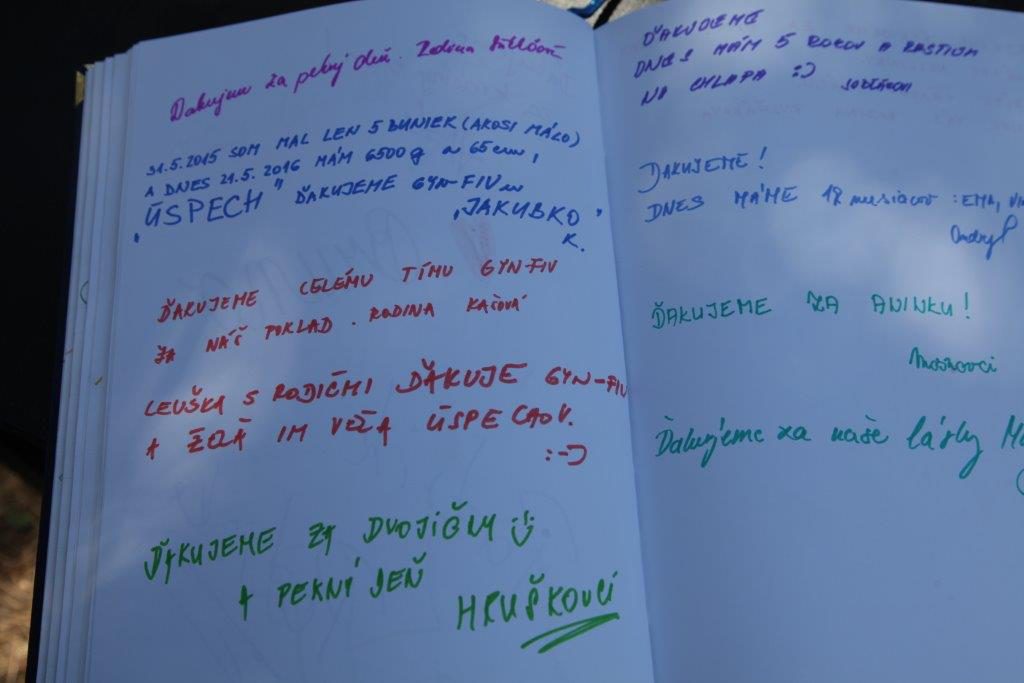 Ďakujem za pekný deň. Rodina
31.5.2015 SOM MAL LEN 5 BUNIEK (AKOSI MÁLO)
A DNES 21.5.2016 MÁM 6500 g a 65 cm,
"ÚSPECH" ĎAKUJEME GYN-FIV
"JAKUBKO"
K.
ĎAKUJEME CELÉMU TÍMU GYN-FIV
ZA NÁŠ POKLAD. RODINA KAŠOVÁ
LEUŠKA S RODIČMI ĎAKUJE GYN-FIV
A ŽELÁ IM VEĽA ÚSPECHOV.
:-)
ĎAKUJEME ZA DVOJIČKY
A PEKNÝ DEŇ
HRUŠKOVCI
ĎAKUJEME
DNES MÁM 5 ROKOV A RASTIEM
NA CHLAPA :)
ĎAKUJEME!
DNES MÁME 18 mesiacov : EMA,
Ondrej
ĎAKUJEME ZA ANINKU!
Ďakujeme za naše lásky